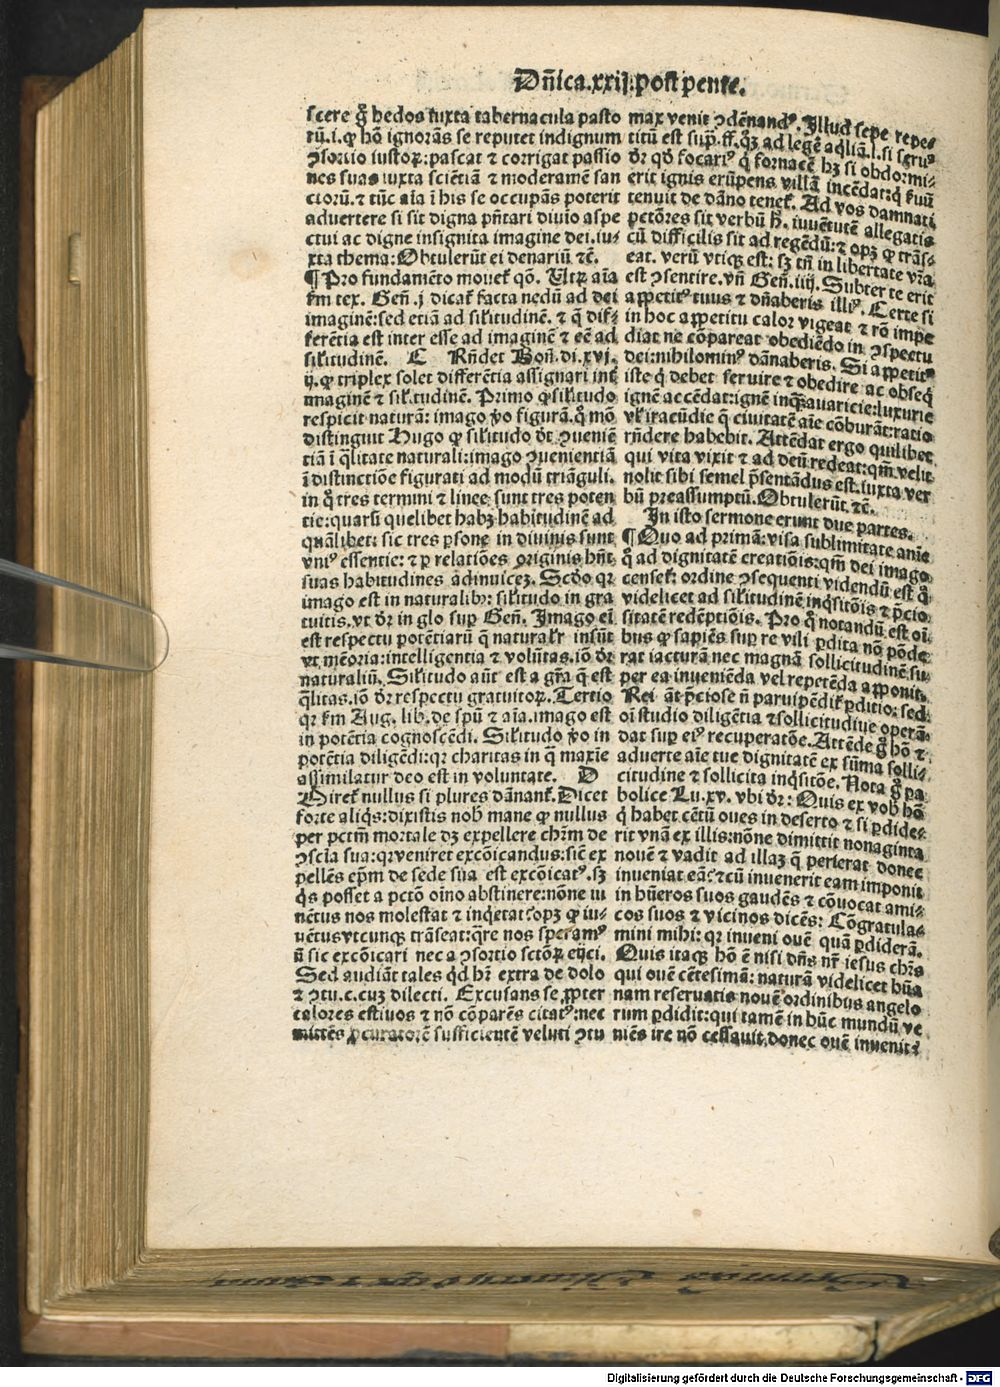 Dñica.xxij.post pente.
scere q̃ hedos iuxta tabernacula pasto
rũ.i.ꝙ hõ ignorãs se reputet indignum
ꝯsortio iustoꝝ: pascat ⁊ corrigat passio
nes suas iuxta sciẽtiã ⁊ moderamẽ san
ctorũ.⁊ tũc aĩa ĩ his se occupãs poterit
aduertere si sit digna pñtari diuio aspe
ctui ac digne insignita imagine dei.iu-
xta thema: Obtulerũt ei denariũ ⁊c̃.
¶ Pro fundamẽto mouet᷑ qõ. Utꝝ aĩa
ẜm tex. Geñ.j dicat᷑ facta nedũ ad dei
imaginẽ: sed etiã ad silitudinẽ. ⁊ q̃ dif-
ferẽtia est inter esse ad imaginẽ ⁊ eẽ ad
silitudinẽ. C Rñdet Boñ.di.xvj.
ij.ꝙ triplex solet differẽtia assignari int̃
imaginẽ ⁊ silitudinẽ. Primo ꝙ silitudo
respicit naturã: imago ꝟo figurã.q̃ mõ
distinguit Hugo ꝙ silitudo dr̃ ꝯueniẽ
tiã ĩ q̃litate naturali: imago ꝯuenientiã
ĩ distinctiõe figurati ad modũ triãguli.
in q̃ tres termini ⁊ linee sunt tres poten
tie: quarũ quelibet habꝫ habitudinẽ ad
quãlibet: sic tres ꝑsone in diuinis sunt
vniꝰ essentie: ⁊ ꝑ relatiões originis hñt
suas habitudines adinuicẽ. Scđo qꝛ
imago est in naturalibꝫ: silitudo in gra
tuitis.vt dr̃ in glo sup Geñ. Imago eĩ
est respectu potẽtiarũ q̃ naturalr̃ insũt
vt mẽoria: intelligentia ⁊ volũtas.iõ dr̃
naturaliũ. Silitudo aũt est a gr̃a q̃ est
q̃litas.iõ dr̃ respectu gratuitoꝝ. Tertio
qꝛ ẜm Aug. lib.de spũ ⁊ aĩa.imago est
in potẽtia cognoscẽdi. Silitudo ꝟo in
potẽtia diligẽdi: qꝛ charitas in q̃ maxĩe
assimilatur deo est in voluntate. D
Miret᷑ nullus si plures dãnant᷑. Dicet
forte aliq̃s: dixistis nob̃ mane ꝙ nullus
per pctm̃ mortale dꝫ expellere chr̃m de
ꝯsciã sua: qꝛ veniret excõicandus: sic̃ ex
pellẽs ep̃m de sede sua est excõicatꝰ. sꝫ
q̃s posset a pctõ oĩno abstinere: nõne iu
uẽtus nos molestat ⁊ inq̃etat? opꝫ ꝙ iu-
uẽtus vtcunqꝫ trãseat: q̃re nos speramꝰ
ñ sic excõicari nec a ꝯsortio sctõꝝ eijci.
Sed audiãt tales q̃d hr̃ extra de dolo
⁊ ꝯtu.c.cuꝫ dilecti. Excusans se ꝓpter
calores estiuos ⁊ nõ cõparẽs citatꝰ: nec
mittẽs ꝓcuratorẽ sufficientẽ veluti ꝯtu
max venit ꝯdẽnandꝰ. Illud sepe repe-
titũ est sup̃.ff. q̃ꝫ ad legẽ aq̃liã.l.si seruꝰ
dr̃ qđ focariꝰ q̃ fornacẽ hꝫ si obdormi-
erit ignis erũpens villã incẽdat: q̃ ẜuũ
tenuit de dãno tenet᷑. Ad vos damnati
petõres sit verbũ ẖ. iuuẽtutẽ allegatis
cũ difficilis sit ad regẽdũ: ⁊ opꝫ ꝙ trãs-
eat. verũ vtiqꝫ est: sꝫ tñ in libertate vr̃a
est ꝯsentire. vñ Geñ.iiij. Subter te erit
appetitꝰ tuus ⁊ dñaberis illiꝰ. Certe si
in hoc appetitu calor vigeat ⁊ rõ impe
diat ne cõpareat obediẽdo in ꝯspectu
dei: nihilominꝰ dãnaberis. Si appetitꝰ
iste q̃ debet seruire ⁊ obedire ac obseq̃
ignẽ accẽdat: ignẽ inqꝫ auaricie: luxurie
vel iracũdie q̃ ciuitatẽ aĩe cõburãt: ratio
rñdere habebit. Attẽdat ergo quilibet
qui vita vixit ⁊ ad deũ redeat: qm̃ velit
nolit sibi semel p̃sentãdus est.iuxta ver
bũ preassumptũ. Obtulerũt.⁊c̃.
In isto sermone erunt due partes.
¶ Quo ad primã: visa sublimitate anĩe
q̃ ad dignitatẽ creatiõis: qm̃ dei imago
censet᷑: ordine ꝯsequenti videndũ est q̃
videlicet ad silitudinẽ inq̃sitõis ⁊ p̃cio
sitatẽ redẽptiõis. Pro q̃ notandũ est oĩ
bus ꝙ sapiẽs sup re vili ꝑdita nõ põde
rat iacturã nec magnã sollicitudinẽ su
per ea inueniẽda vel repetẽda apponit.
Rei aũt p̃ciose ñ paruipẽdit᷑ ꝑditio: sed
oĩ studio diligẽtia ⁊ sollicitudiue operã
dat sup eiꝰ recuperatõe. Attẽde q̃ hõ ⁊
aduerte aĩe tue dignitatẽ ex sũma solli-
citudine ⁊ sollicita inq̃sitõe. Nota q̃ pa
bolice Lu.xv. vbi dr̃: Quis ex vob̃ hõ
q̃ habet cẽtũ oues in deserto ⁊ si ꝑdide-
rit vnã ex illis: nõne dimittit nonaginta
nouẽ ⁊ vadit ad illaꝫ q̃ perierat donec
inueniat eã? ⁊ cũ inuenerit eam imponit
in hũeros suos gaudẽs ⁊ cõuocat ami-
cos suos ⁊ vicinos dicẽs: Cõgratula-
mini mihi: qꝛ inueni ouẽ quã ꝑdiderã.
Quis itaqꝫ hõ ẽ nisi dñs nr̃ iesus chr̃s
qui ouẽ cẽtesimã: naturã videlicet hũa
nam reseruatis nouẽ ordinibus angelo
rum ꝑdidit: qui tamẽ in hũc mundũ ve
niẽs ire nõ cessauit.donec ouẽ inuenit:
Digitalisierung gefördert durch die Deutsche Forschungsgemeinschaft - DFG